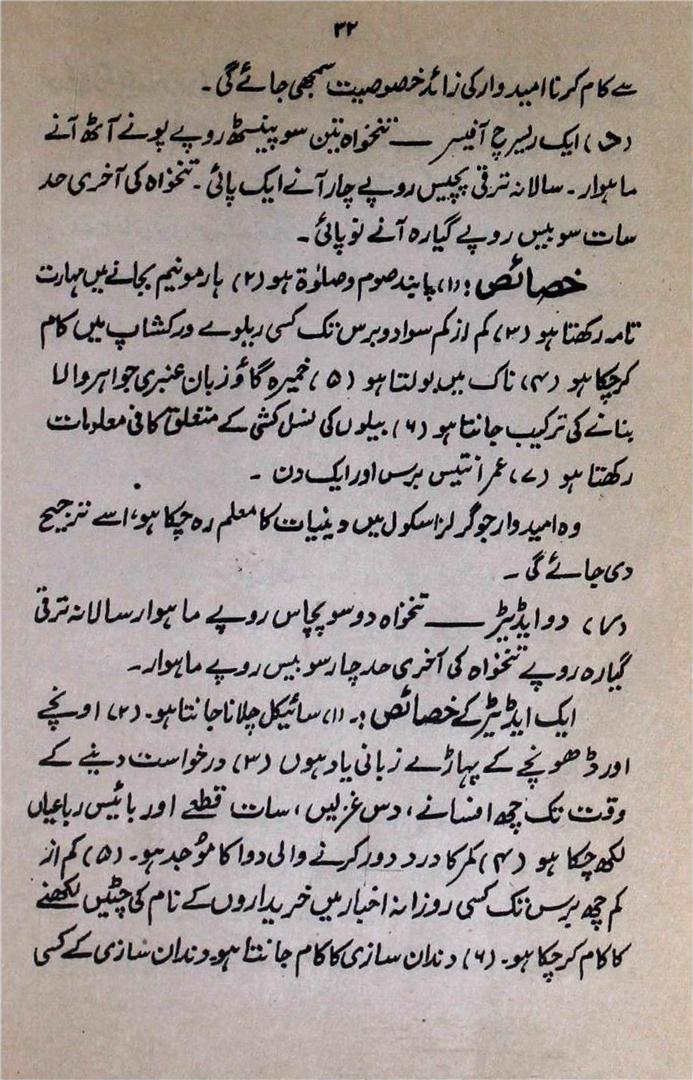 ۳۲
سے کام کرنا امیدوار کی زائد خصوصیت سمجھی جائے گی۔
(ھ) ایک ریسرچ آفیسر ــــ تنخواہ تین سو پینسٹھ روپے پونے آٹھ آنے
ماہوار۔ سالانہ ترقی پچیس روپے چار آنے ایک پائی۔ تنخواہ کی آخری حد
سات سو بیس روپے گیارہ آنے نو پائی۔
خصائص: (۱) پابند صوم و صلوٰۃ ہو (۲) ہارمونیم بجانے میں مہارت
تامہ رکھتا ہو (۳) کم از کم سوا دو برس تک کسی ریلوے ورکشاپ میں کام
کر چکا ہو (۴) ناک میں بولتا ہو (۵) خمیرہ گاؤ زبان عنبری جواہر والا
بنانے کی ترکیب جانتا ہو (۶) بیلوں کی نسل کشی کے متعلق کافی معلومات
رکھتا ہو (۷) عمر انتیس برس اور ایک دن ۔
وہ امیدوار جو گرلز اسکول میں دینیات کا معلم رہ چکا ہو، اسے ترجیح
دی جائے گی۔
(۷) دو ایڈیٹر ــــ تنخواہ دو سو پچاس روپے ماہوار سالانہ ترقی
گیارہ روپے تنخواہ کی آخری حد چار سو بیس روپے ماہوار۔
ایک ایڈیٹر کے خصائص:۔ (۱) سائیکل چلانا جانتا ہو۔ (۲) اونچے
اور ڈھونچے کے پہاڑے زبانی یاد ہوں (۳) درخواست دینے کے
وقت تک چھ افسانے، دس غزلیں، سات قطعے اور بائیس رباعیاں
لکھ چکا ہو (۴) کمر کا درد دور کرنے والی دوا کا مُوجد ہو۔ (۵) کم از
کم چھ برس تک کسی روزانہ اخبار میں خریداروں کے نام کی چٹیں لکھنے
کا کام کر چکا ہو۔ (۶) دندان سازی کا کام جانتا ہو۔ دندان سازی کے کسی